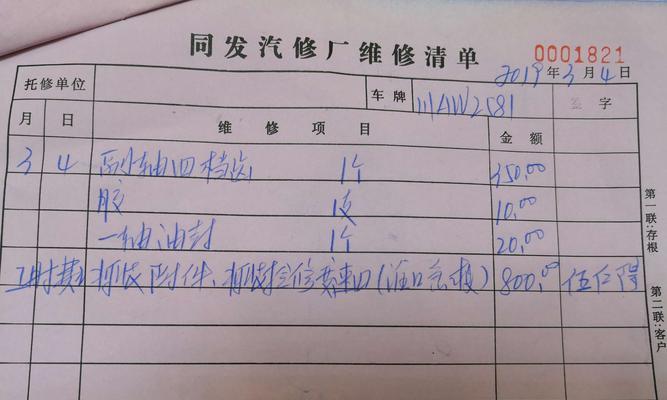 同发汽修厂维修清单 0001821
2019年3月4日
托修单位 车牌 川AW2581 签字
月 日 维修项目 金额
3 4 副轴四档齿 1个 350.00
胶 1支 10.00
一轴油封 1个 20.00
工时费 拆装附件、拆装检修 800.00
第一联:存根
第二联:客户